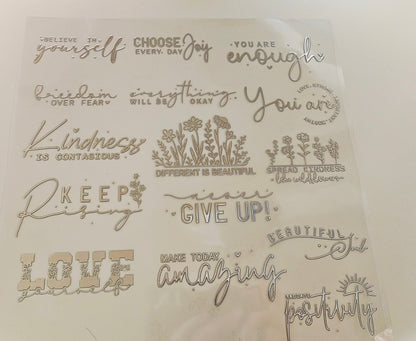 BELIEVE IN
yourself
CHOOSE Joy
EVERY DAY
YOU ARE
enough
freedom
OVER FEAR
everything
WILL BE OKAY
You are
Kindness
IS CONTAGIOUS
DIFFERENT IS BEAUTIFUL
SPREAD KINDNESS
like wildflowers
KEEP
Rising
never
GIVE UP!
BEAUTIFUL
LOVE
yourself
MAKE TODAY
amazing
positivity